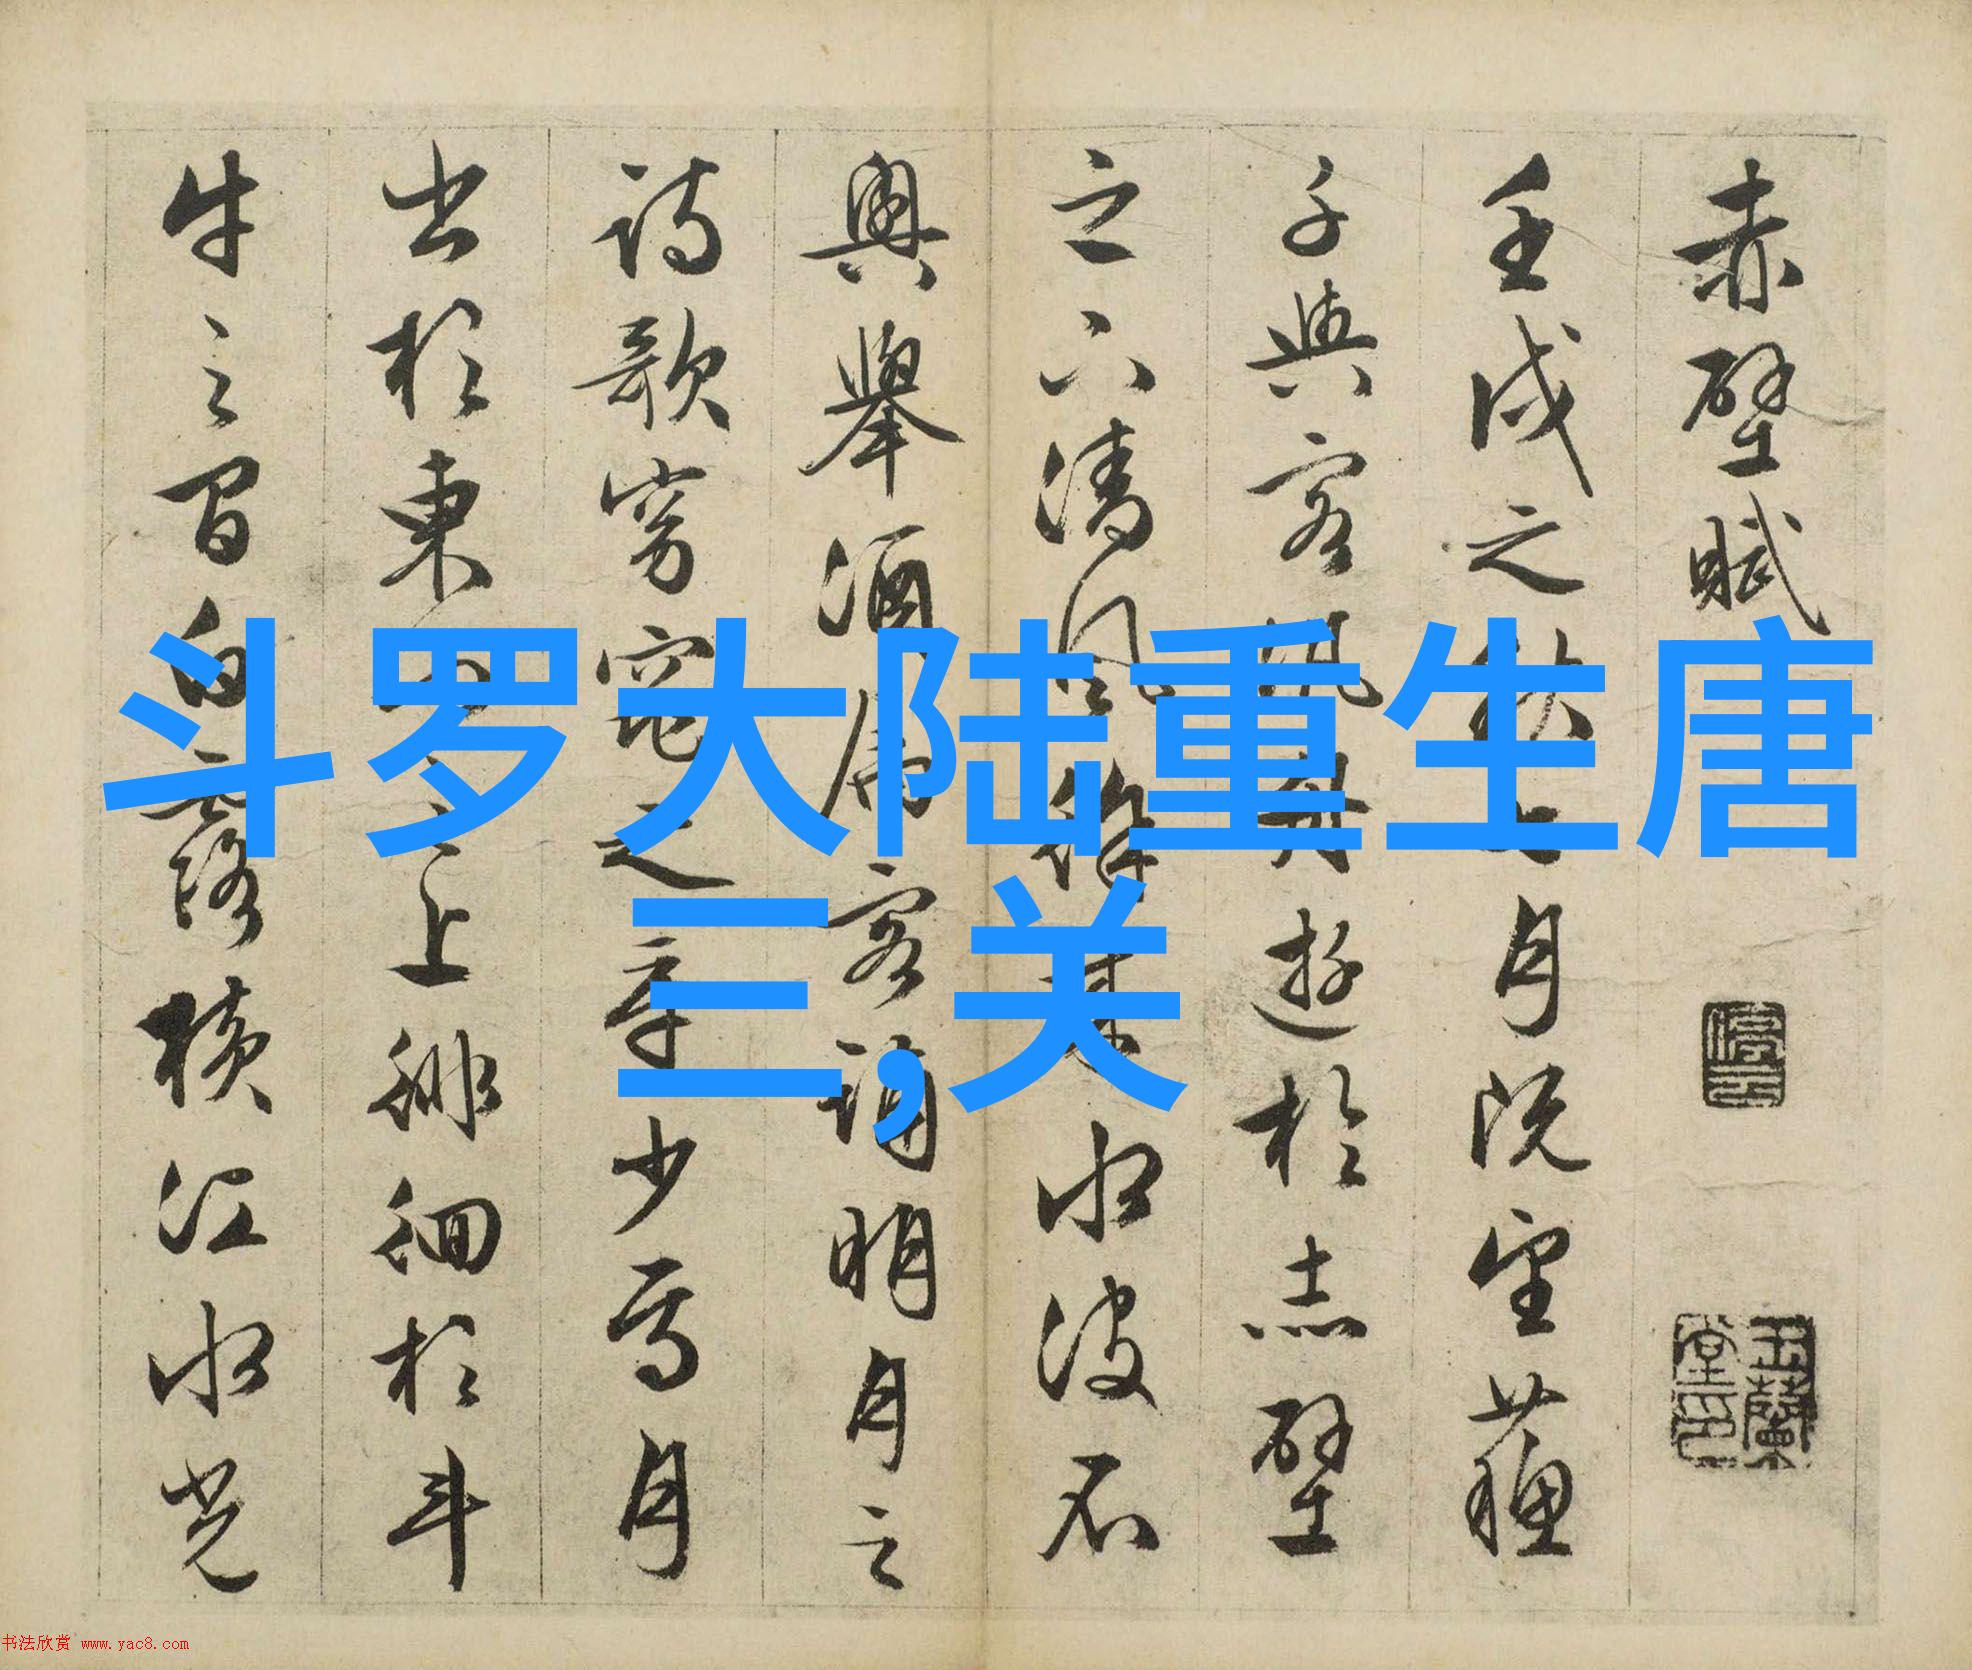 斗罗大陆重生唐
三,关
赤壁賦
停云
玉蘭堂印
壬戌之秋七月既望蘓
子與客汎舟遊於赤壁
之下清風徐来水波不
興舉酒屬客誦明月之
詩歌窈窕之章少焉月
出於東山之上徘徊於斗
牛之間白露横江水光
书法欣赏 www.yac8.com